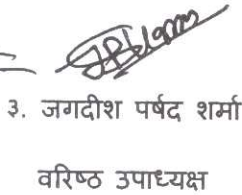 ३. जगदीश पर्षद शर्मा
वरिष्ठ उपाध्यक्ष